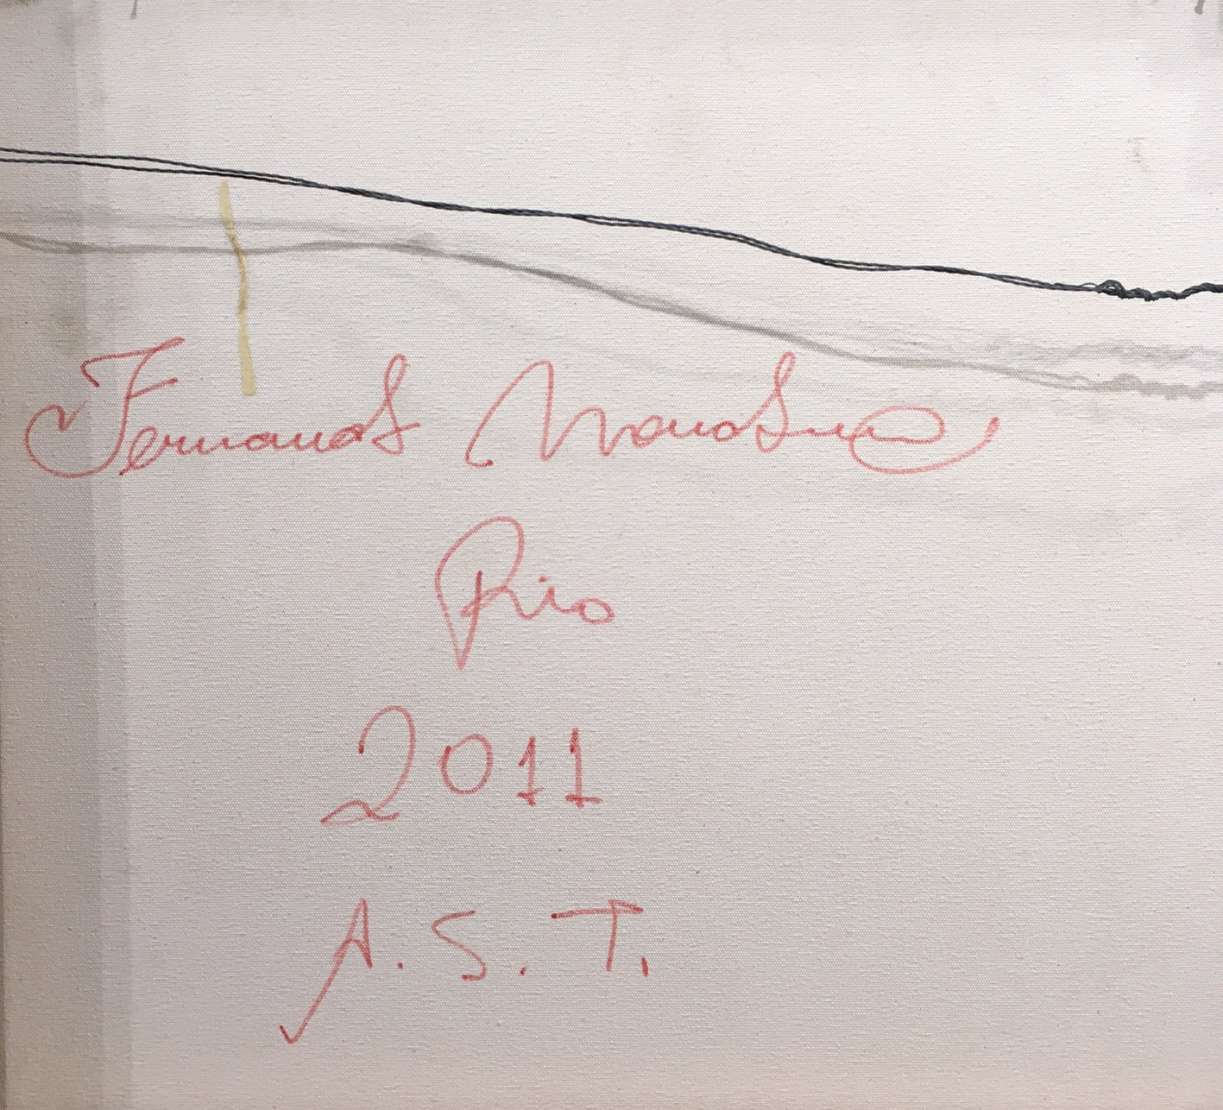 Fernando Mendonça
Rio
2011
A.S.T.